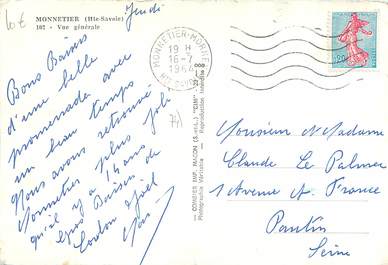 10€
MONNETIER (Hte-Savoie)
102 - Vue générale
Jeudi
Bons Baisers
d'une belle
promenade avec
un beau temps
Nous avons retrouvé
Monnetier plus joli
qu'il y a 14 ans
Gros Baisers de
MONNETIER-MORNEX
19 H
16-7
1962
0,20
COMBIER IMP. MACON (S.-et-L.) "CIM"
Photographie Véritable - Reproduction Interdite
74
Monsieur Madame
Claude Le Palmer
1 Avenue A. France
Pantin
Seine